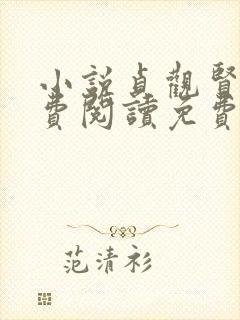 小説貞觀賢
費閱讀免費
范清衫